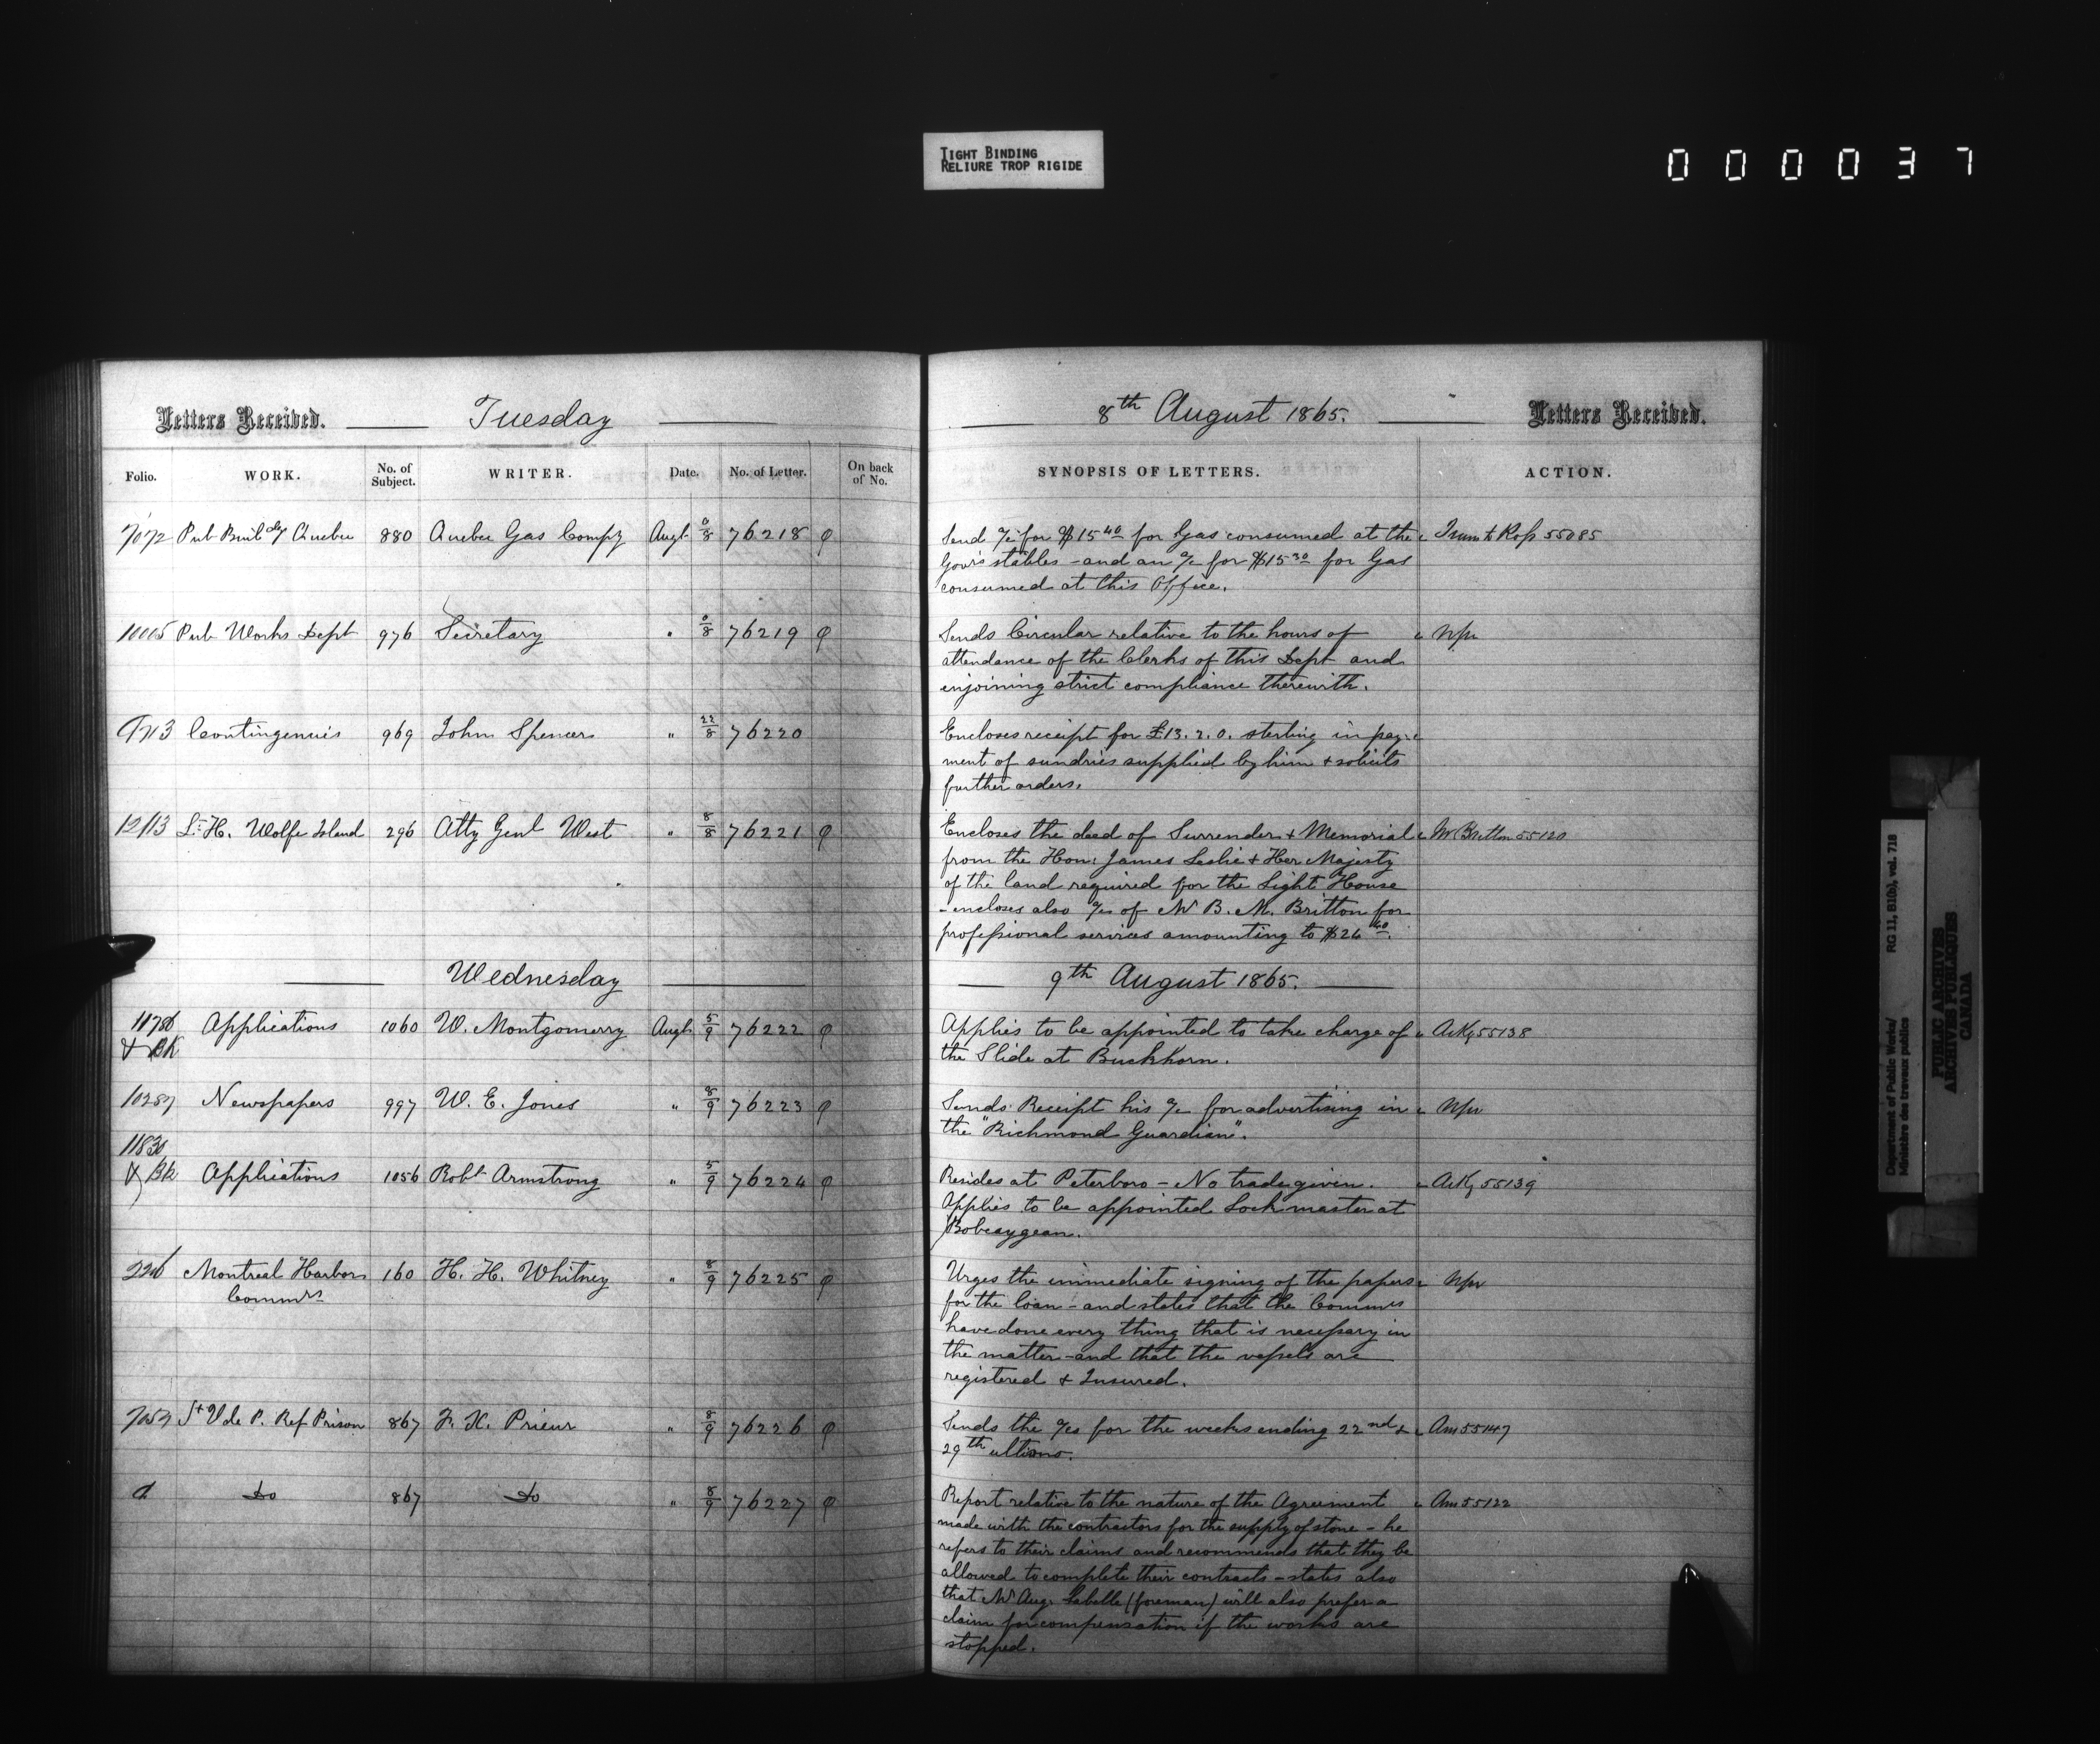 TIGHT BINDING
RELIURE TROP RIGIDE
000037
Letters Received. Tuesday 8th August 1865. Letters Received.
Folio. WORK. No. of Subject. WRITER. Date. No. of Letter. On back of No. SYNOPSIS OF LETTERS. ACTION.
7072 Pub Buildgs Quebec 880 Quebec Gas Compy Augt 8 76218 φ Send a/c for $15 40 for Gas consumed at the 55085
Gov's stables - and an a/c for $15 30 for Gas
consumed at this Office.
10005 Pub Works Dept 976 Secretary " 8 76219 φ Sends Circular relative to the hours of
attendance of the Clerks of this Dept and
enjoining strict compliance therewith.
Contingencies 969 John Spencer " 22/8 76220 Encloses receipt for £13. 2. 0. sterling in pay-
ment of sundries supplied by him + solicits
further orders.
12113 Lt H. Wolfe Island 296 Atty Genl West " 8/8 76221 φ Encloses the deed of Surrender + Memorial Mr Britton 55120
from the Hon: James Leslie + Her Majesty
of the land required for the Light House
- encloses also a/c of Mr B. M. Britton for
professional services amounting to $26 40.
Wednesday 9th August 1865.
11786 Applications 1060 W. Montgomery Augt 5/9 76222 φ Applies to be appointed to take charge of Ackg 55138
+ BK the Slide at Buckhorn.
10287 Newspapers 997 W. E. Jones " 8/9 76223 φ Sends Receipt his a/c for advertising in Npr
the "Richmond Guardian".
1183
+ Bk Applications 1056 Robt Armstrong " 5/9 76224 φ Resides at Peterboro - No trade given. Ackg 55139
Applies to be appointed Lock master at
Bobcaygean.
2206 Montreal Harbor 160 H. H. Whitney " 8/9 76225 φ Urges the immediate signing of the papers Npr
Commrs for the loan - and states that the Commrs
have done every thing that is necessary in
the matter - and that the vessels are
registered + Insured.
7057 St V de P. Ref Prison 867 F. X. Prieur " 8/9 76226 φ Sends the a/cs for the weeks ending 22nd & Am 55147
29th ultimo.
d Do 867 Do " 8/9 76227 φ Report relative to the nature of the Agreement Am 55122
made with the contractors for the supply of stone - he
refers to their claims and recommends that they be
allowed to complete their contracts - states also
that Mr Aug. Labelle (foreman) will also prefer a
claim for compensation if the works are
stopped.
Department of Public Works/ RG 11, B1(b), vol. 718
Ministère des travaux publics
PUBLIC ARCHIVES
ARCHIVES PUBLIQUES
CANADA